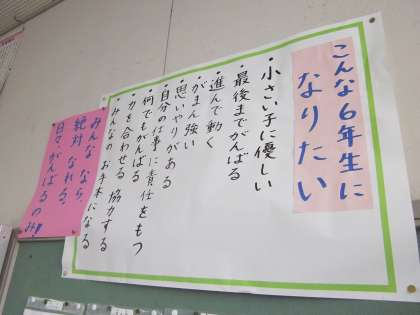 こんな6年生に
なりたい
・小さい子に優しい
・最後までがんばる
・進んで動く
・がまん強い
・思いやりがある
・自分の仕事に責任をもつ
・何でもがんばる
・力を合わせる 協力する
・みんなのお手本になる
みんななら、
絶対なれる。
日々、がんばるのみ!!